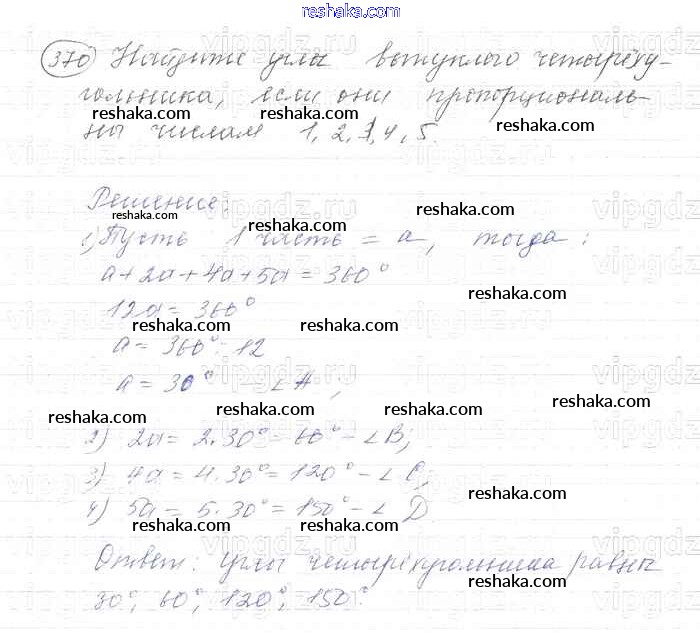 reshaka.com
370 Найдите углы выпуклого четырёху-
гольника, если они пропорциональ-
reshaka.com reshaka.com
ны числам 1, 2, 4, 5.
reshaka.com
Решение:
reshaka.com reshaka.com
reshaka.com
1) Пусть 1 часть = a, тогда:
a+2a+4a+5a=360°
reshaka.com
12a=360°
reshaka.com reshaka.com
a=360°:12
a=30° - ∠A,
reshaka.com
reshaka.com reshaka.com
2) 2a=2·30°=60°-∠B;
3) 4a=4·30°=120°-∠C,
reshaka.com
4) 5a=5·30°=150°-∠D
reshaka.com reshaka.com
Ответ: углы четырёхугольника равны
reshaka.com
30°; 60°; 120°; 150°.